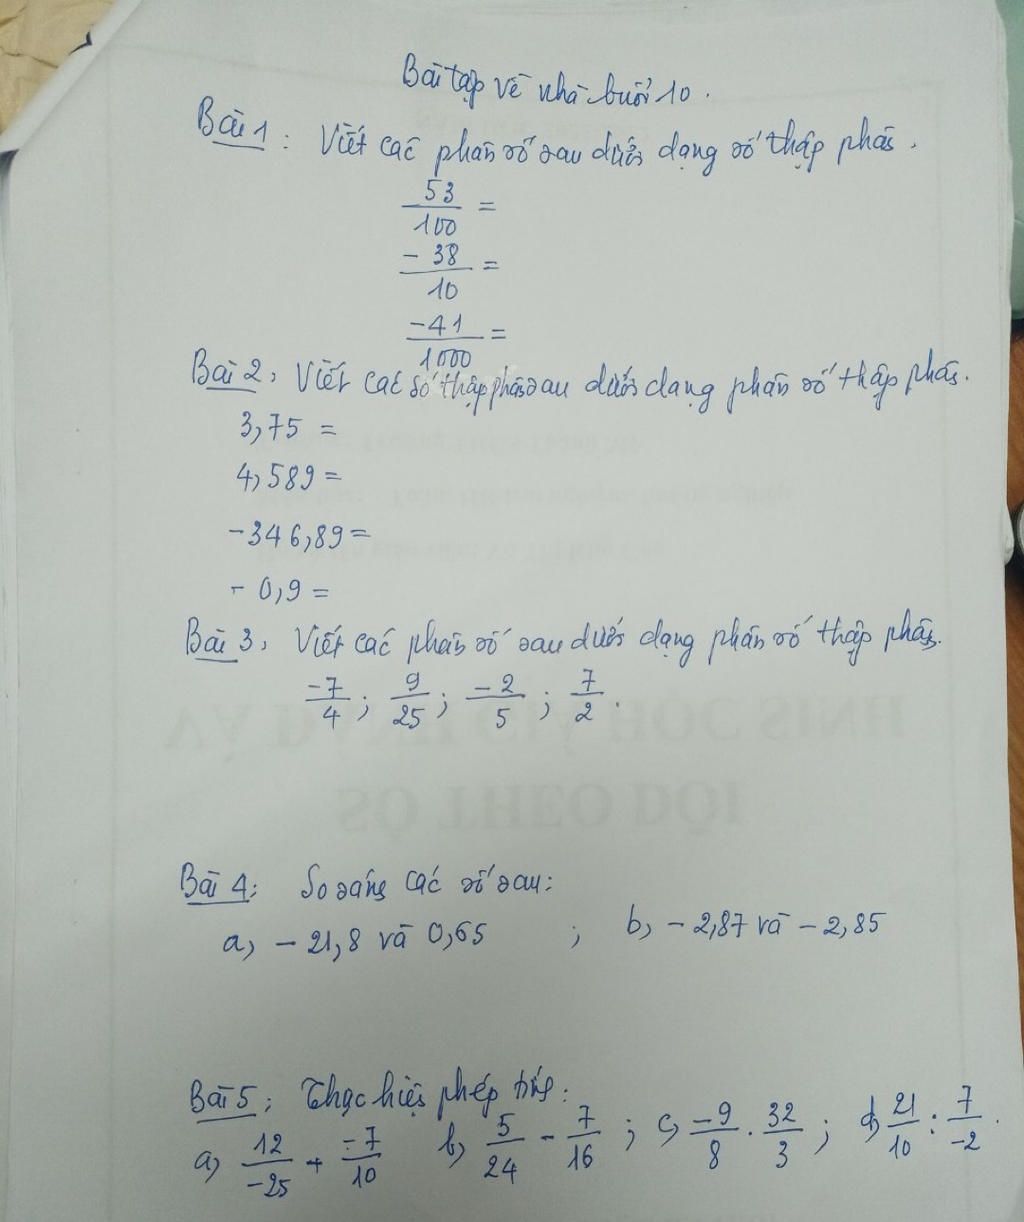 Bài tập về nhà buổi 10.
Bài 1: Viết các phân số sau dưới dạng số thập phân.
53/100 =
-38/10 =
-41/1000 =
Bài 2, Viết các số thập phân sau dưới dạng phân số thập phân.
3,75 =
4,589 =
-346,89 =
- 0,9 =
Bài 3, Viết các phân số sau dưới dạng phân số thập phân.
-7/4 ; 9/25 ; -2/5 ; 7/2 .
VÀ ĐÁNH GIÁ HỌC SINH
SỔ THEO DÕI
Bài 4: So sánh các số sau:
a, - 21,8 và 0,65 ; b, - 2,87 và - 2,85
Bài 5: Thực hiện phép tính:
a, 12/-25 + -7/10 b, 5/24 - 7/16 ; c, -9/8 . 32/3 ; d, 21/10 : 7/-2 .